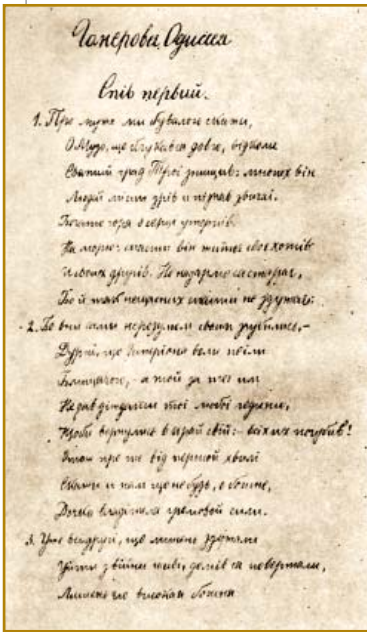 Гомерова Одиссея
Спів первый.
1. Про мужа ми бувалого скажи,
О Музо, що блукався довго, відколи
Святий град Трої знищив: многих він
Людій міста зрів и пізнав звичаї.
Богато горя в серци утерпів
На морю: спасти він житє своє хотів
И своих другів. Не надармо ся старав,
Бо й так нещасних спасти не здужав:
2. Бо вни сами нерозумом своїм згубились, –
Дурні, що Гиперіона воли поїли
а той за тоє им
Не дав діждати тої любої години,
Щоби вернулись в край свій: – всіх их погубив!
про те від першої хвилі
Скажи и нам що небудь, о богине,
Дочко владителя громової сили.
3. Уже всі други, що лишень здужали
Уйти з війни живі, домів ся повертали,
Лишень го високая богиня